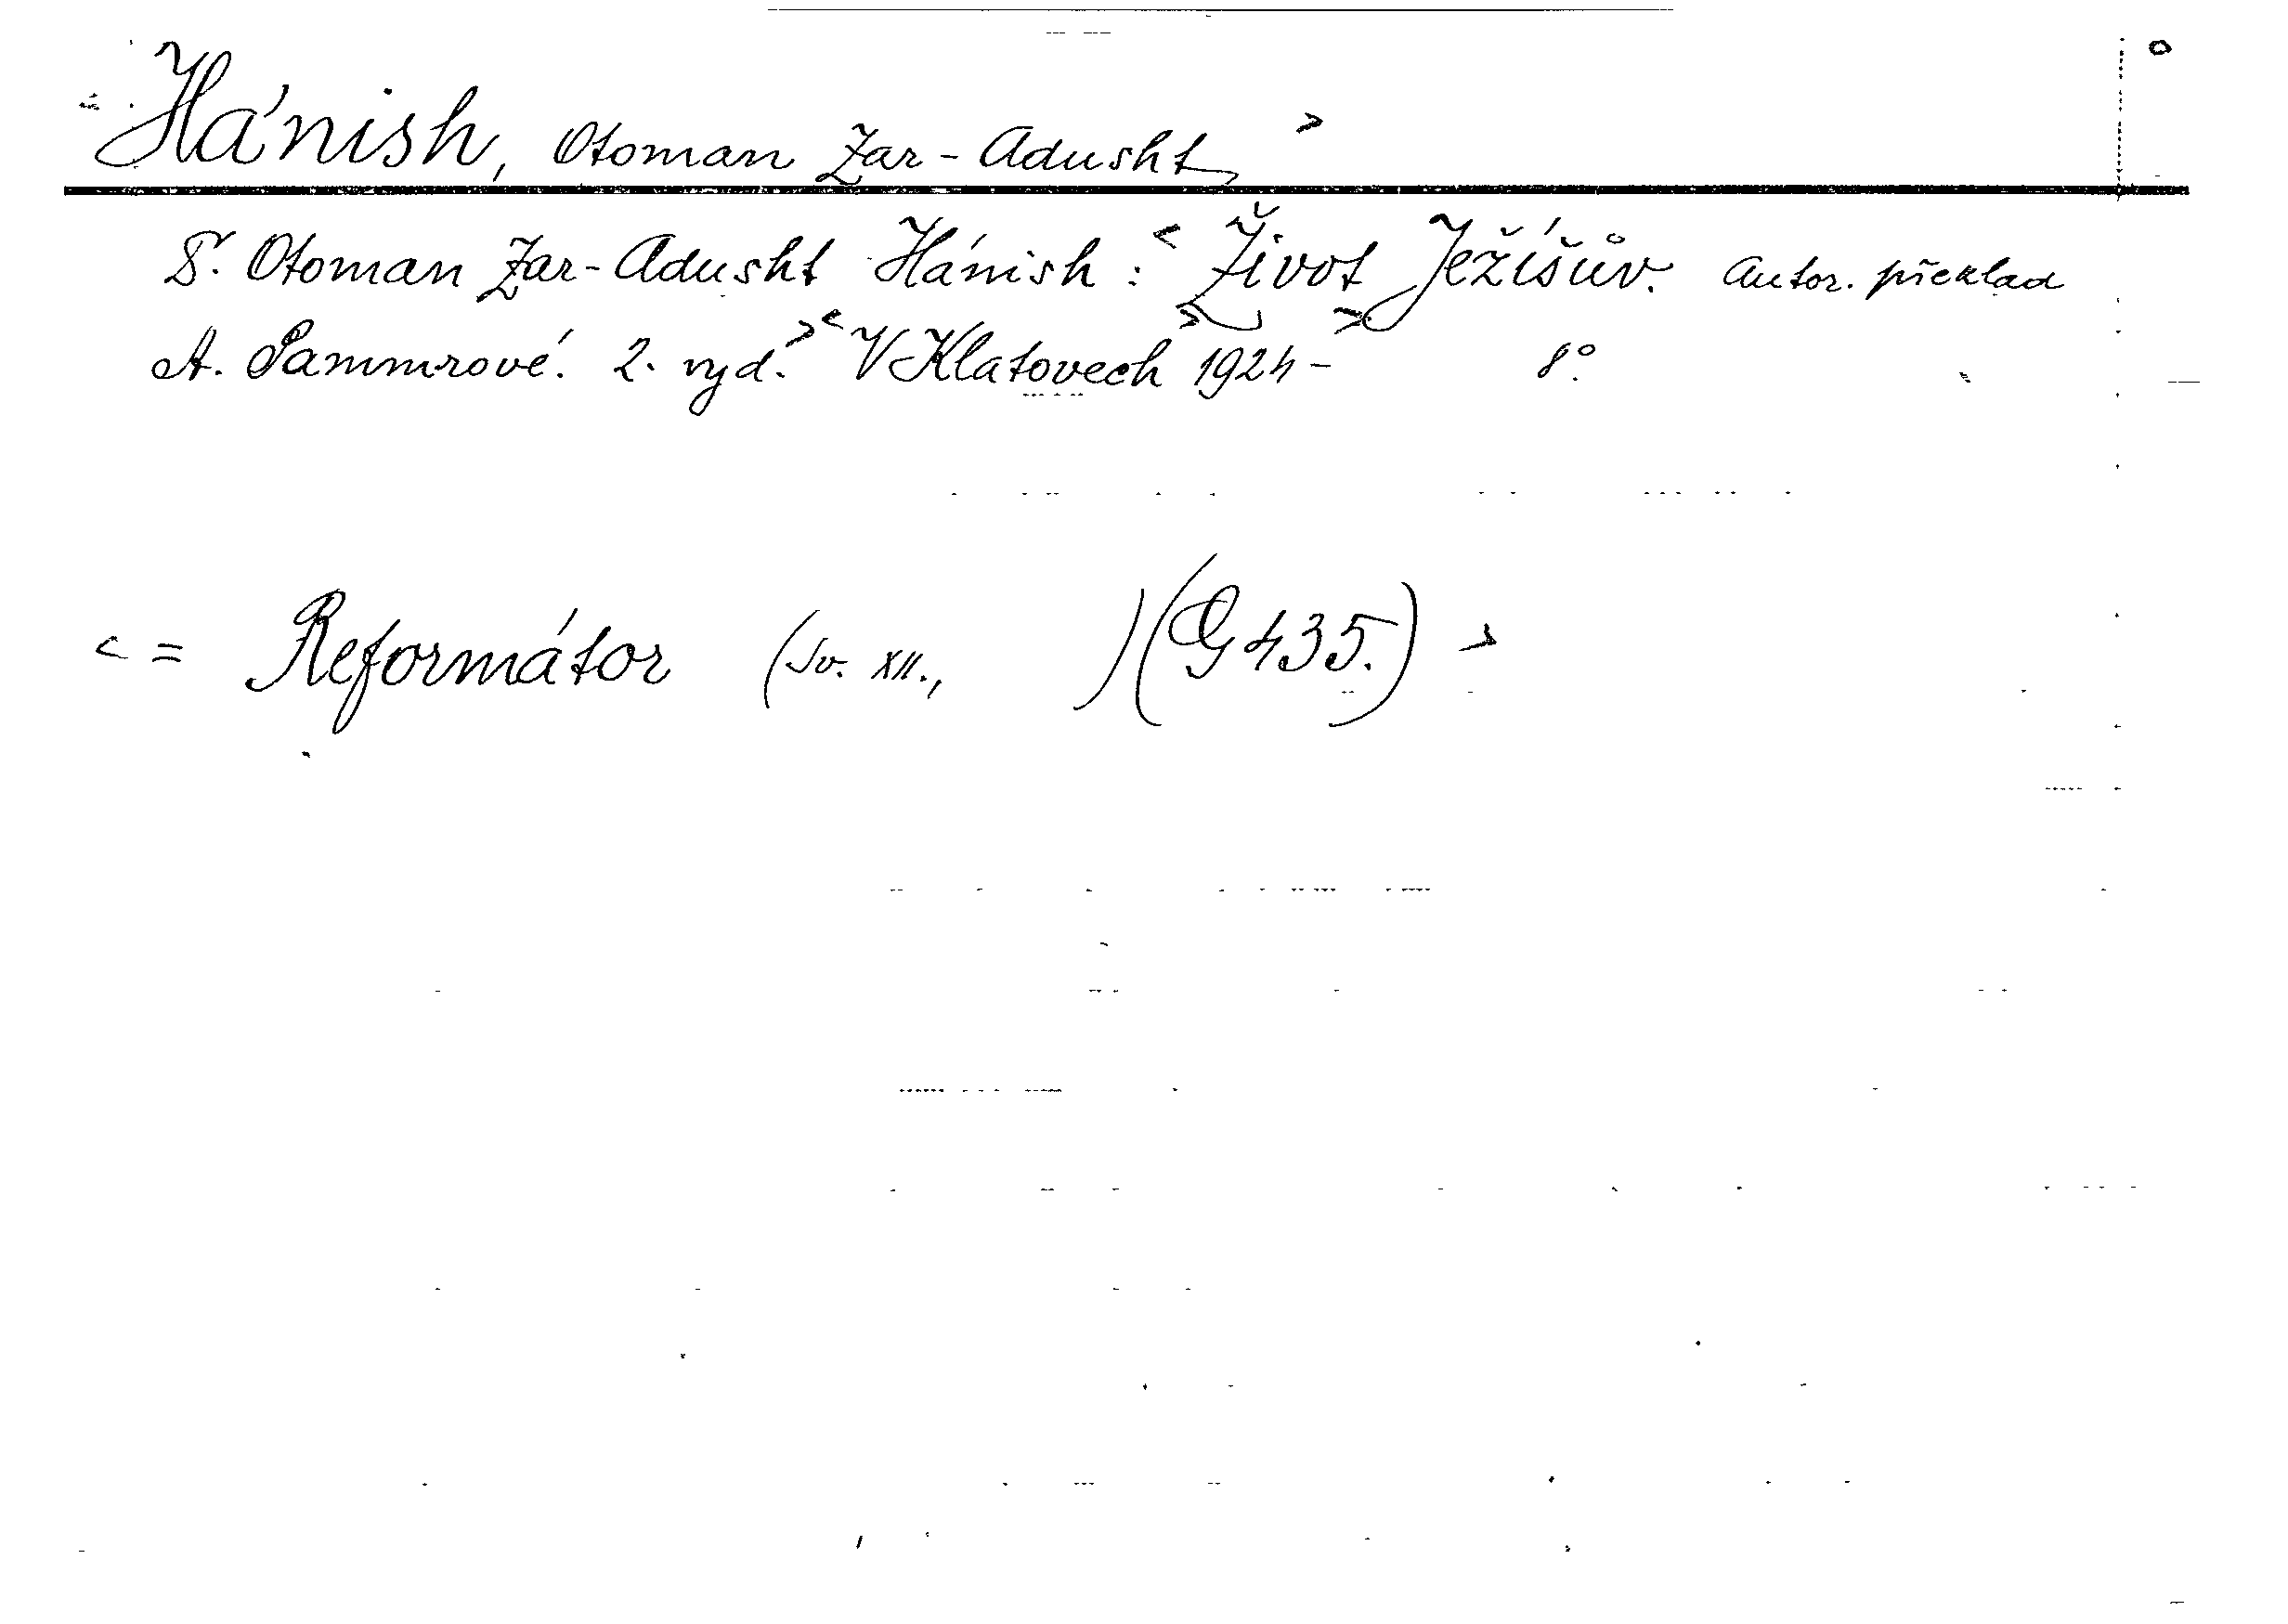 < Hánish, Otoman Zar-Adusht >
D. Otoman Zar-Adusht Hánish: < Život Ježíšův. Autor. překlad
A. Pammrové. 2. vyd. > < V Klatovech > 1924 - > 8°.
< = Reformátor (Sv. XII., ) (G 435.) >